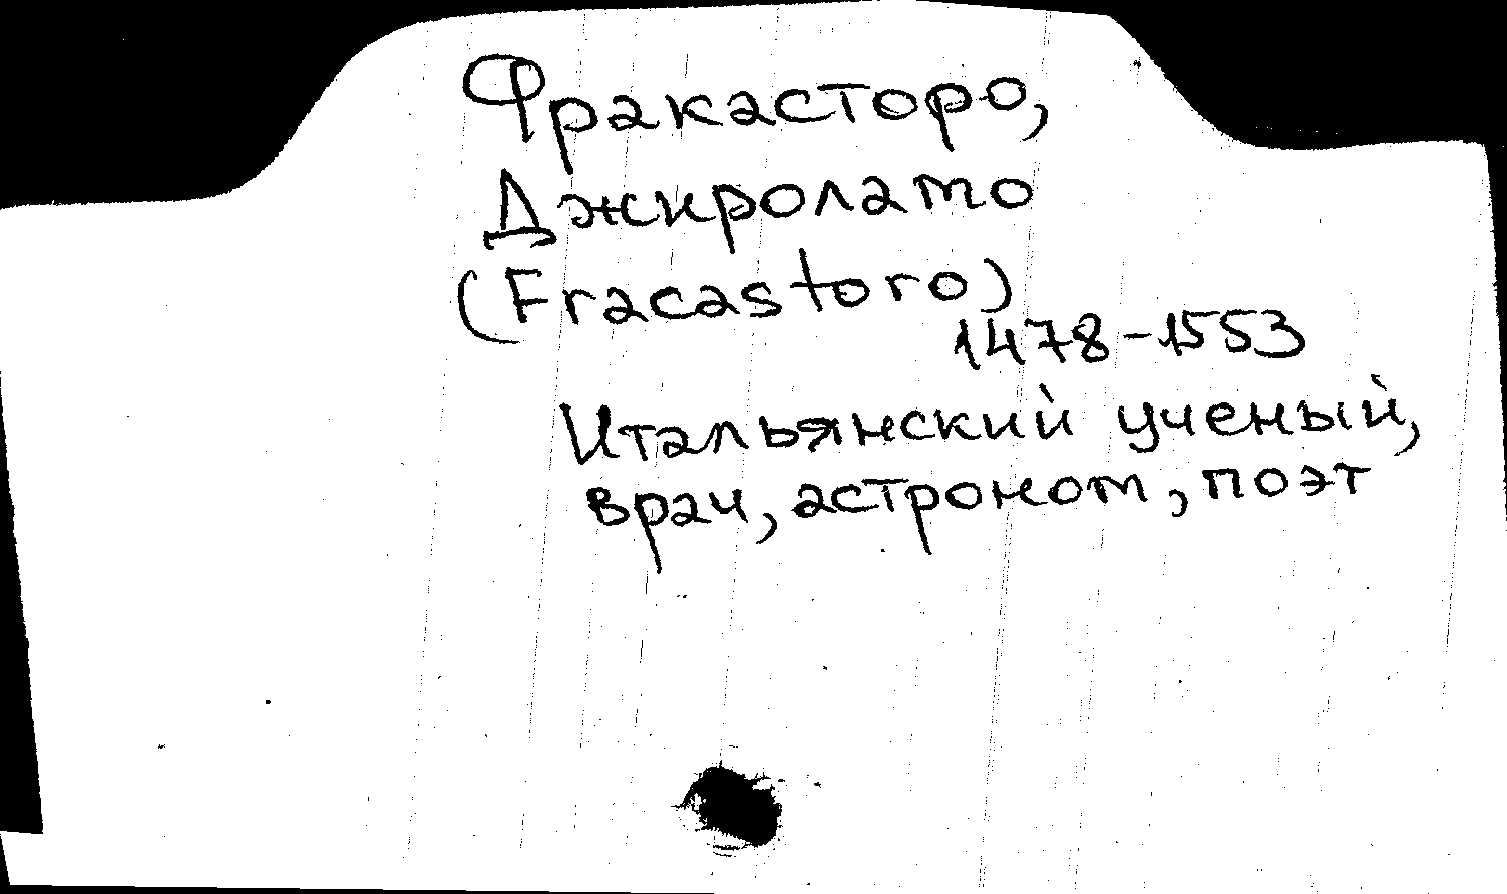 Фракасторо,
Джироламо
(Fracastoro)
1478-1553
Итальянский ученый,
врач, астроном, поэт